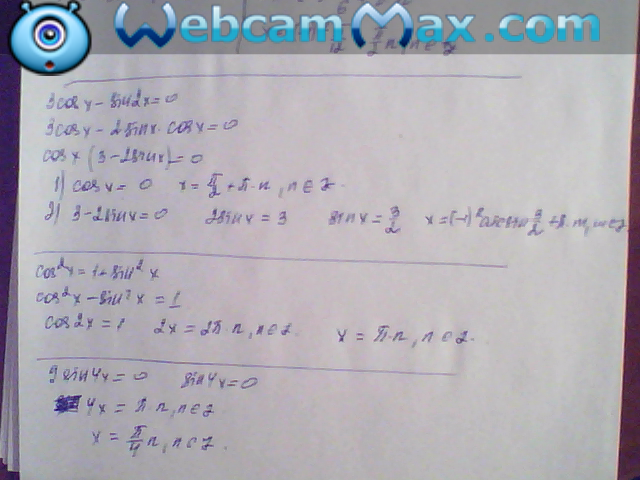 WebcamMax.com
3cos x - sin2x = 0
3cos x - 2sinx · cosx = 0
cosx (3 - 2sinx) = 0
1) cosx = 0 x = π/2 + π·n, n∈z.
2) 3 - 2sinx = 0 2sinx = 3 sinx = 3/2 x = (-1)ⁿ arcsin 3/2 + π·m, m∈z
cos²x = 1 + sin²x
cos²x - sin²x = 1
cos2x = 1 2x = 2π·n, n∈z. x = π·n, n∈z.
9sin4x = 0 sin4x = 0
4x = π·n, n∈z
x = π/4 n, n∈z.